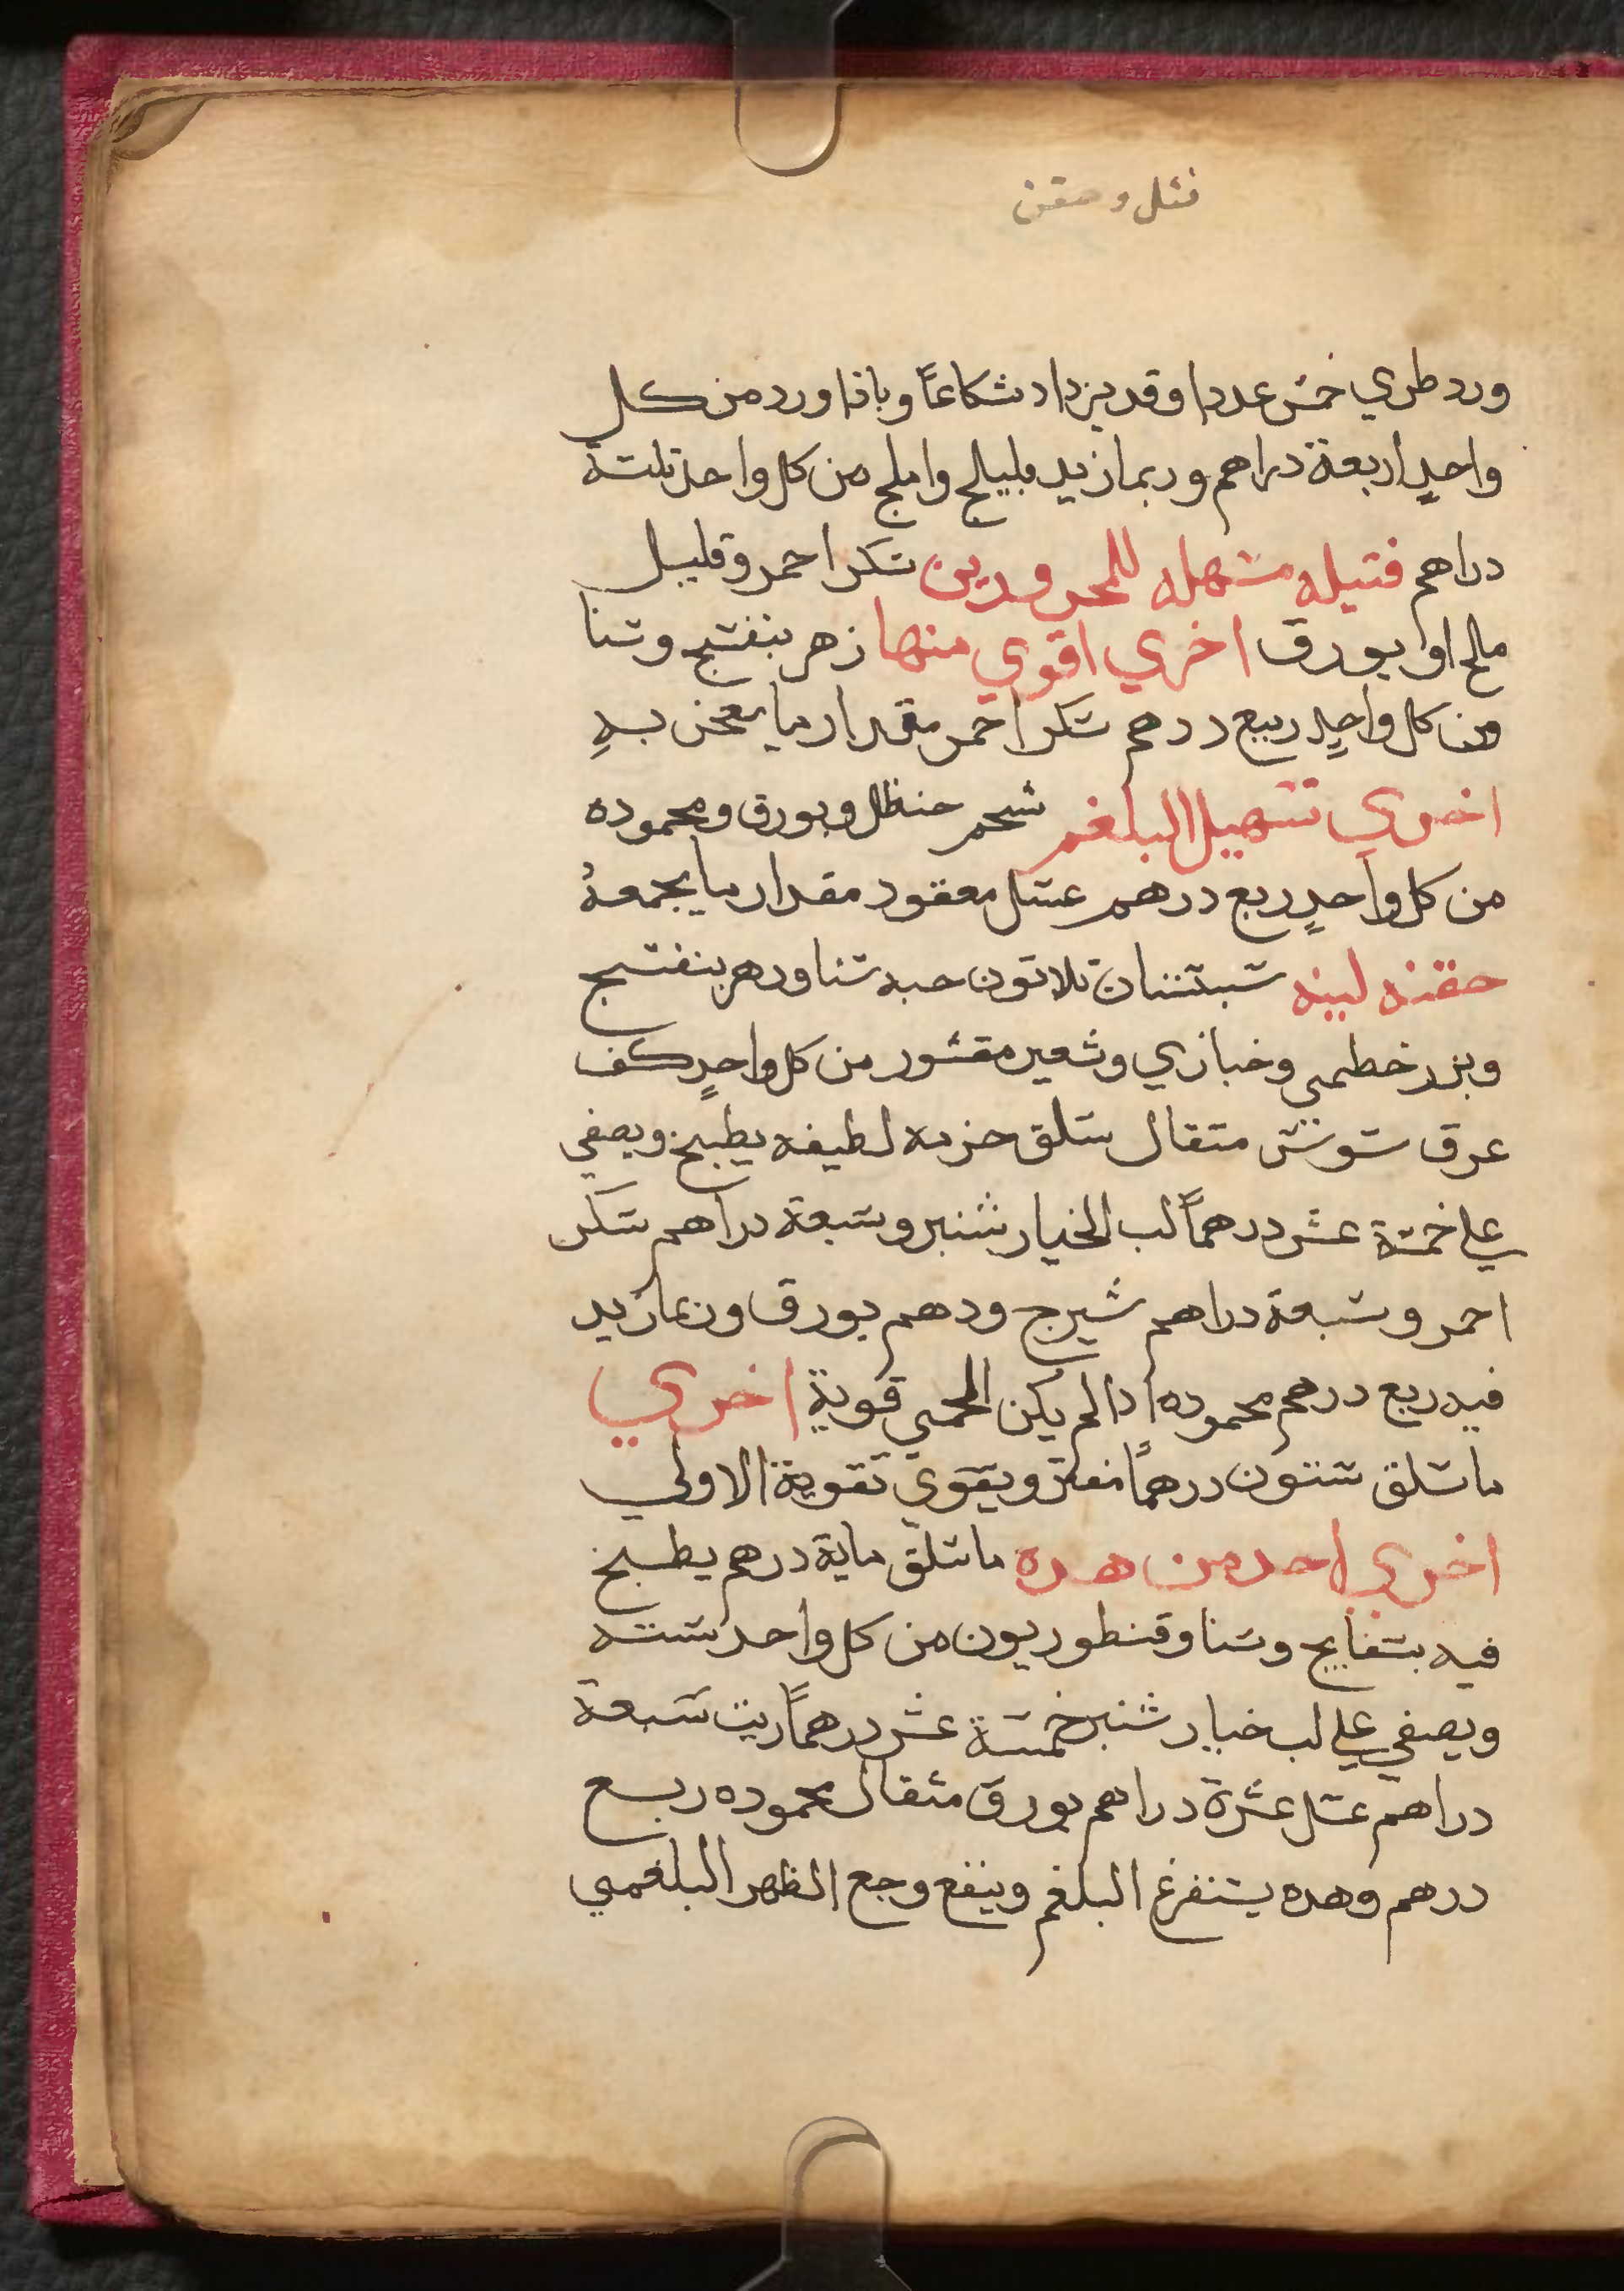 فتل وحقن
ورد طري خمس عددا وقد يزداد شكاعاً وباذا ورد من كل
واحدٍ اربعة دراهم وربما زيد بليلج واملج من كل واحد تلتة
دراهم فتيله مسهله للمحرورين سكر احمر وقليل
ملح او بورق اخري اقوي منها زهر بنفسج وسنا
من كل واحدٍ ربع درهم سكر احمر مقدار ما يعجن بهِ
اخري تسهيل البلغم شحم حنظل وبورق ومحموده
من كل واحدٍ ربع درهم عسل معقود مقدار ما يجمعهُ
حقنه لينه سبستان تلاتون حبه سنا وزهر بنفسج
وبزر خطمي وخبازي وشعير مقشور من كل واحدٍ كف
عرق سوس متقال سلق حزمه لطيفه يطبخ ويصفي
علي خمسة عشر درهماً لب الخيار شنبر وسبعة دراهم سكر
احمر وسبعة دراهم شيرج ودهم بورق وربما زيد
فيه ربع درهم محموده ادا لم يكن الحمي قوية اخري
ما سلق ستون درهماً مفتر ويقوي تقوية الاولي
اخري احد من هده ما سلق ماية درهم يطبخ
فيه بسفايج وسنا وقنطوريون من كل واحد ستة
ويصفي علي لب خيار شنبر خمسة عشر درهماً زيت سبعة
دراهم عسل عشرة دراهم بورق مثقال محموده ربع
درهم وهده يستفرغ البلغم وينفع وجع الظهر البلغمي